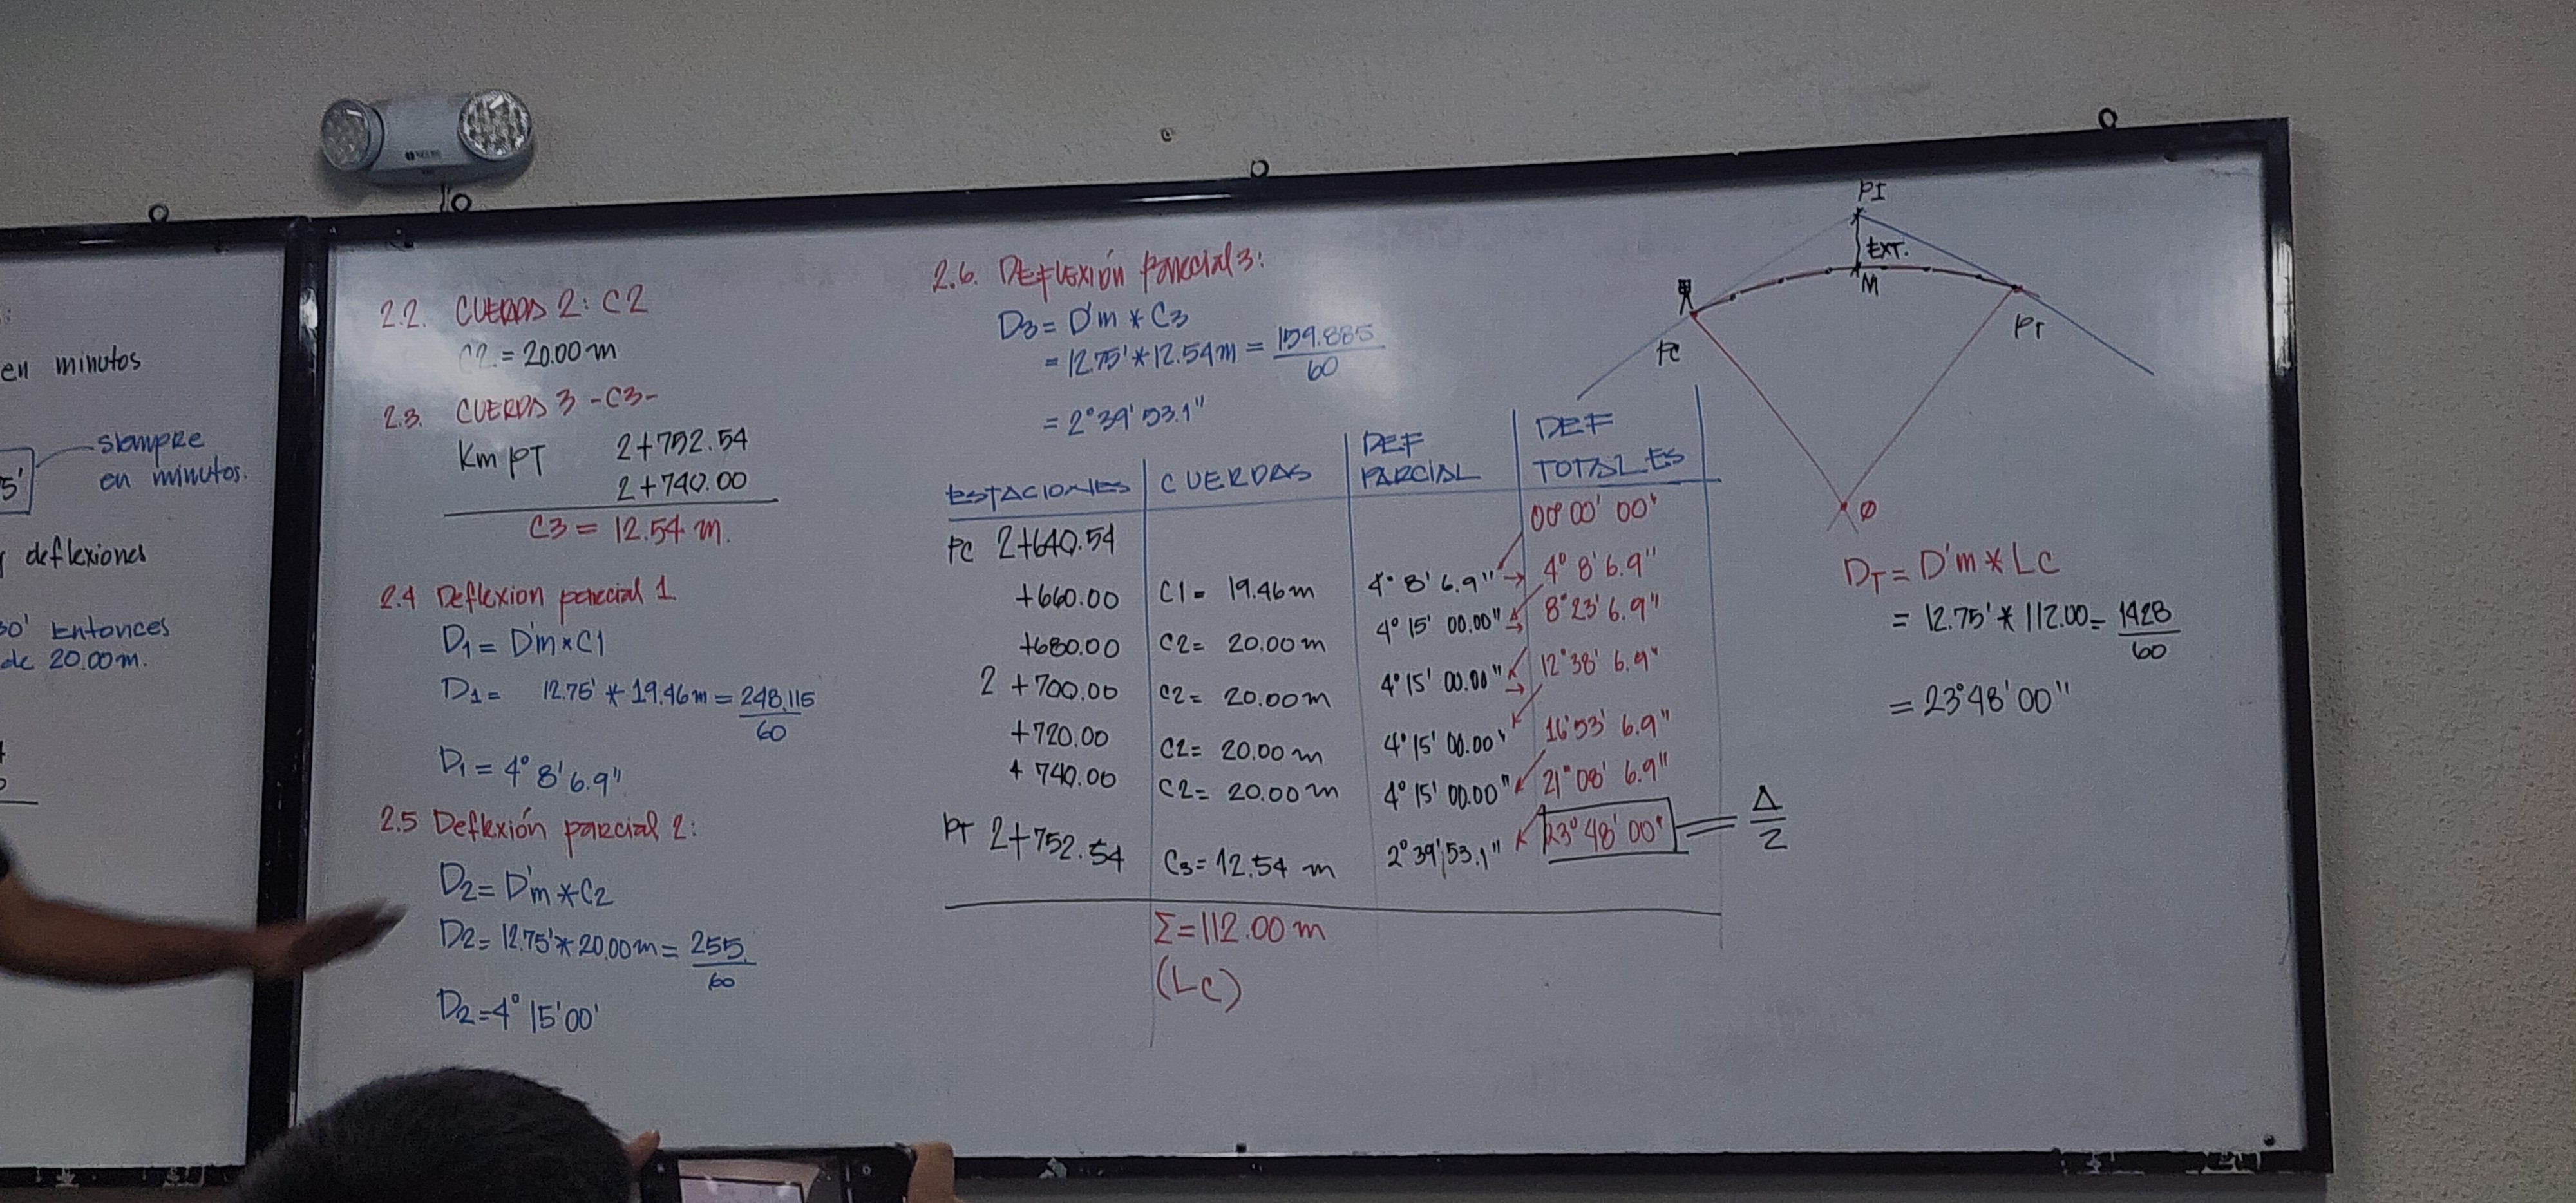 en minutos
5'
siempre
en minutos.
deflexiones
30' Entonces
de 20.00 m.
2.2. CUERDAS 2: C2
C2 = 20.00 m
2.3. CUERDA 3 -C3-
Km PT 2+752.54
2+740.00
C3 = 12.54 m.
2.4 Deflexion parcial 1
D1 = D'm x C1
D1 = 12.75' * 19.46 m = 248.115
60
D1 = 4° 8' 6.9"
2.5 Deflexión parcial 2:
D2 = D'm * C2
D2 = 12.75' * 20.00 m = 255.
60
D2 = 4° 15' 00'
2.6. DEFLEXIÓN PARCIAL 3:
D3 = D'm * C3
= 12.75' * 12.54 m = 159.885
60
= 2° 39' 53.1"
ESTACIONES CUERDAS DEF PARCIAL DEF TOTALES
00° 00' 00"
PC 2+640.54
+660.00 C1 = 19.46 m 4° 8' 6.9" 4° 8' 6.9"
+680.00 C2 = 20.00 m 4° 15' 00.00" 8° 23' 6.9"
2 +700.00 C2 = 20.00 m 4° 15' 00.00" 12° 38' 6.9"
+720.00 C2 = 20.00 m 4° 15' 00.00" 16° 53' 6.9"
+740.00 C2 = 20.00 m 4° 15' 00.00" 21° 08' 6.9"
PT 2+752.54 C3 = 12.54 m 2° 39' 53.1" 23° 48' 00" = Δ/2
Σ = 112.00 m
(Lc)
PI
EXT.
M
PC
PT
Ø
DT = D'm * Lc
= 12.75' * 112.00 = 1428
60
= 23° 48' 00"